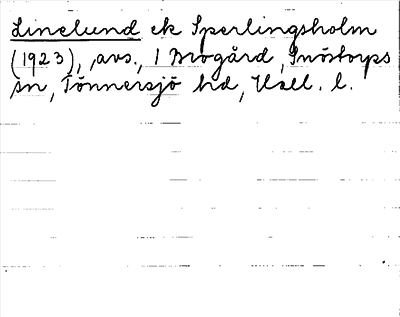 Linelund ek Sperlingsholm
(1923), avs., 1 Brogård, Snöstorps
sn, Tönnersjö hd, Hall. l.